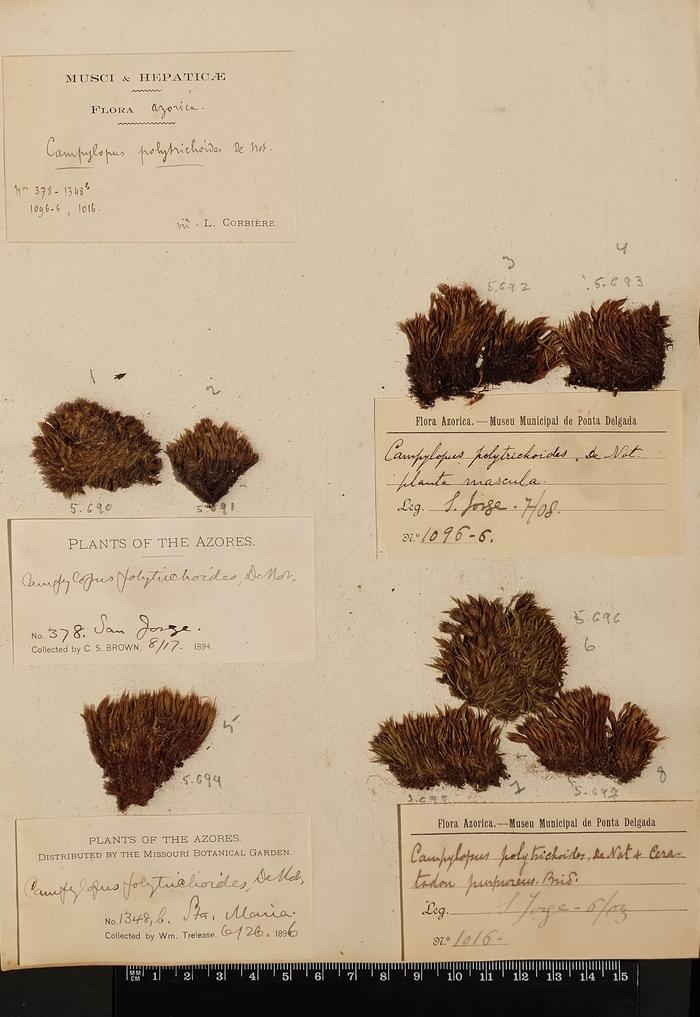 MUSCI & HEPATICÆ
FLORA azorica.
Campylopus polytrichoides De Not.
Nos 378 - 1348b
1096-6, 1016.
L. CORBIÈRE
3
4
5.692
5.693
1
2
5.690
5.691
Flora Azorica.—Museu Municipal de Ponta Delgada
Campylopus polytrichoides, De Not.
planta mascula.
Leg. S. Jorge. 7/08.
N.º 1096-6.
PLANTS OF THE AZORES.
Campylopus polytrichoides, De Not,
No. 378. San Jorge.
Collected by C. S. BROWN, 8/17. 1894.
5.696
6
5
5.694
7
8
5.697
PLANTS OF THE AZORES.
DISTRIBUTED BY THE MISSOURI BOTANICAL GARDEN.
Campylopus polytrichoides, De Not,
No. 1348, b. Sta. Maria.
Collected by Wm. Trelease. 6/26. 1896
Flora Azorica.—Museu Municipal de Ponta Delgada
Campylopus polytrichoides, De Not & Cera-
todon purpureus. Brid.
Leg. S Jorge - 6/03
N.º 1016-
MM
CM 1 2 3 4 5 6 7 8 9 10 11 12 13 14 15